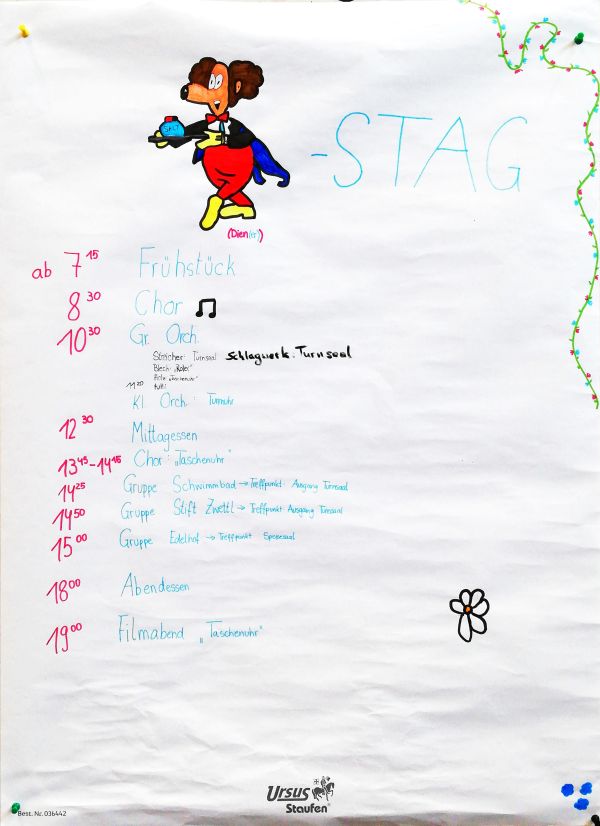 -STAG
(Dien(er))
ab 7 15 Frühstück
8 30 Chor
10 30 Gr. Orch.
Streicher: Turnsaal Schlagwerk: Turnsaal
Blech: „Roter"
Holz: „Taschenuhr"
11 20 tutti
Kl. Orch.: Turnuhr
12 30 Mittagessen
13 45 - 14 15 Chor: „Taschenuhr"
14 25 Gruppe Schwimmbad → Treffpunkt: Ausgang Turnsaal
14 50 Gruppe Stift Zwettl → Treffpunkt: Ausgang Turnsaal
15 00 Gruppe Edelhof → Treffpunkt Speisesaal
18 00 Abendessen
19 00 Filmabend „Taschenuhr"
Ursus
Staufen
Best. Nr. 036442